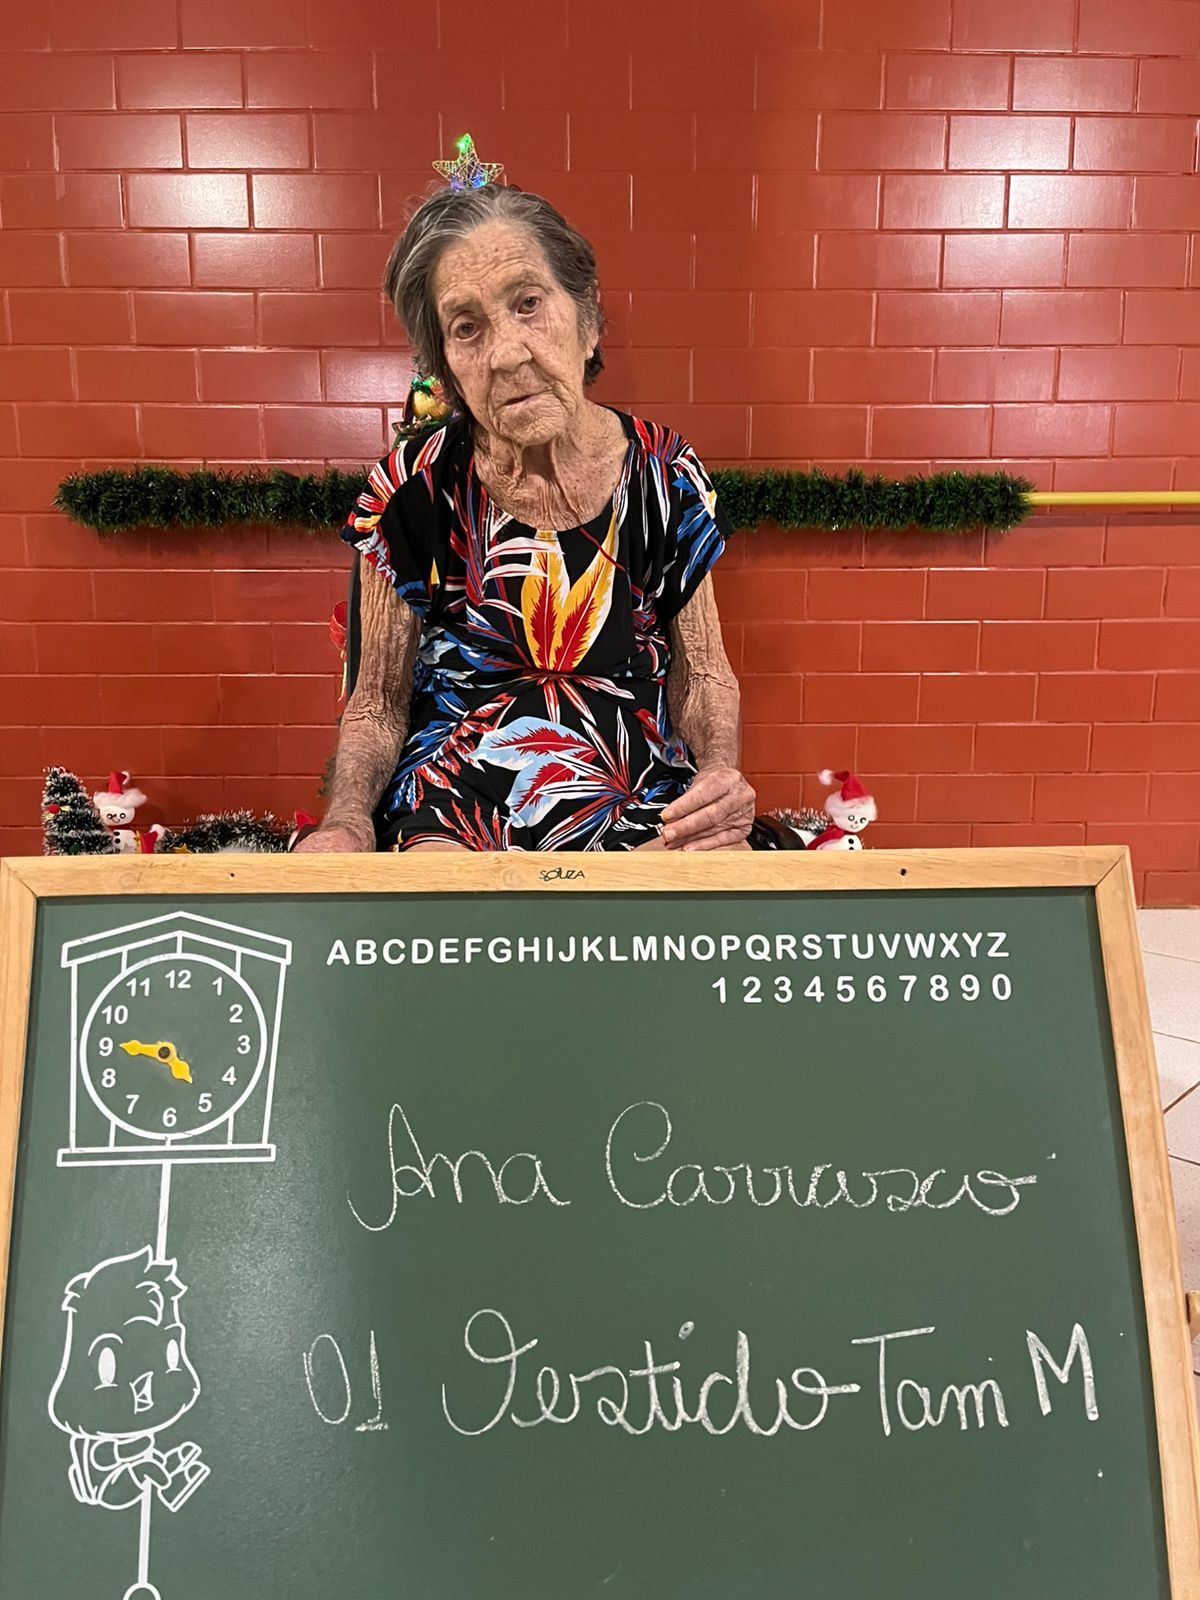 SOUZA
ABCDEFGHIJKLMNOPQRSTUVWXYZ
1234567890
12
11 1
10 2
9 3
8 4
7 5
6
Ana Carrasco
01 Vestido Tam M